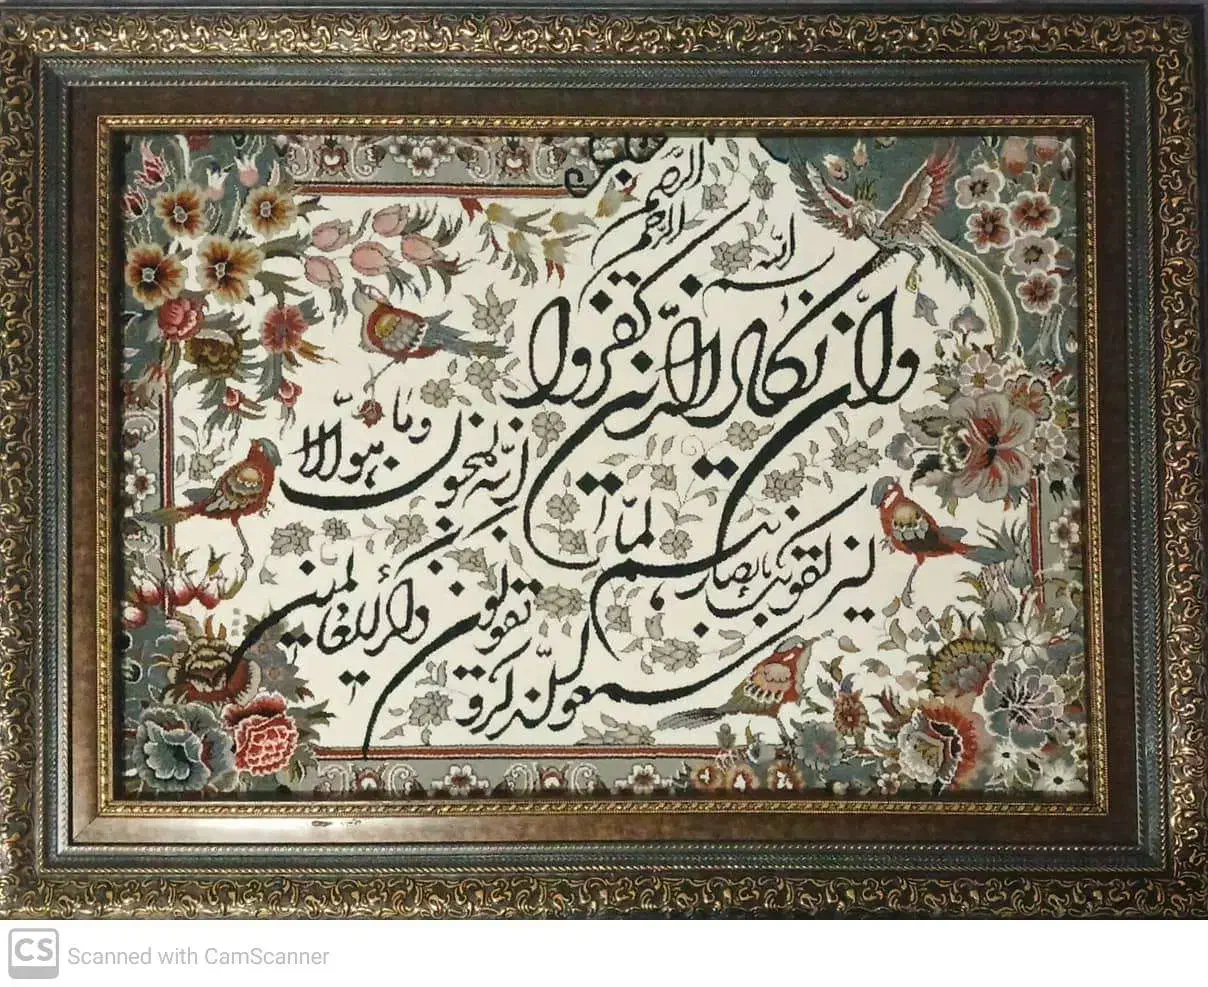 بسم الله
الرحمن الرحیم
وان یکاد الذین کفروا
لیزلقونک بابصارهم لما
سمعوا الذکر و
یقولون انه لمجنون وما
هو الا
ذکر للعالمین
CS Scanned with CamScanner